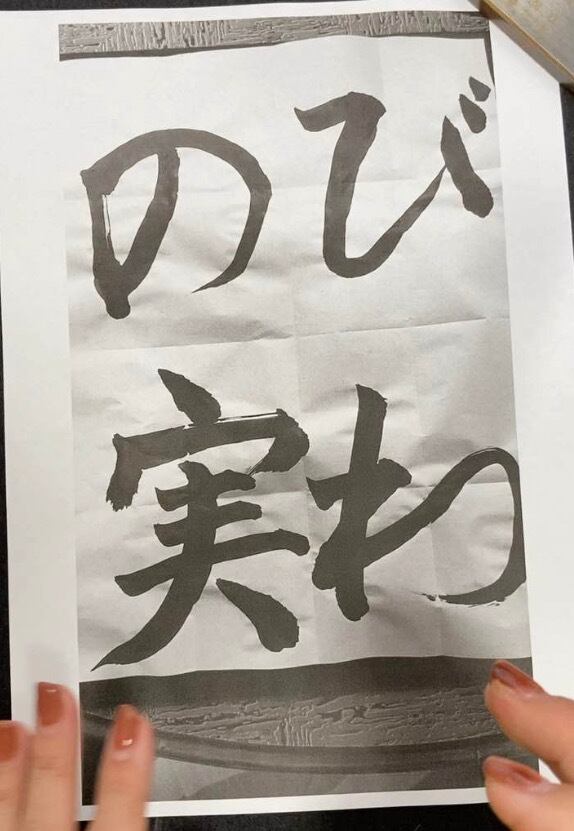 びわ
の実